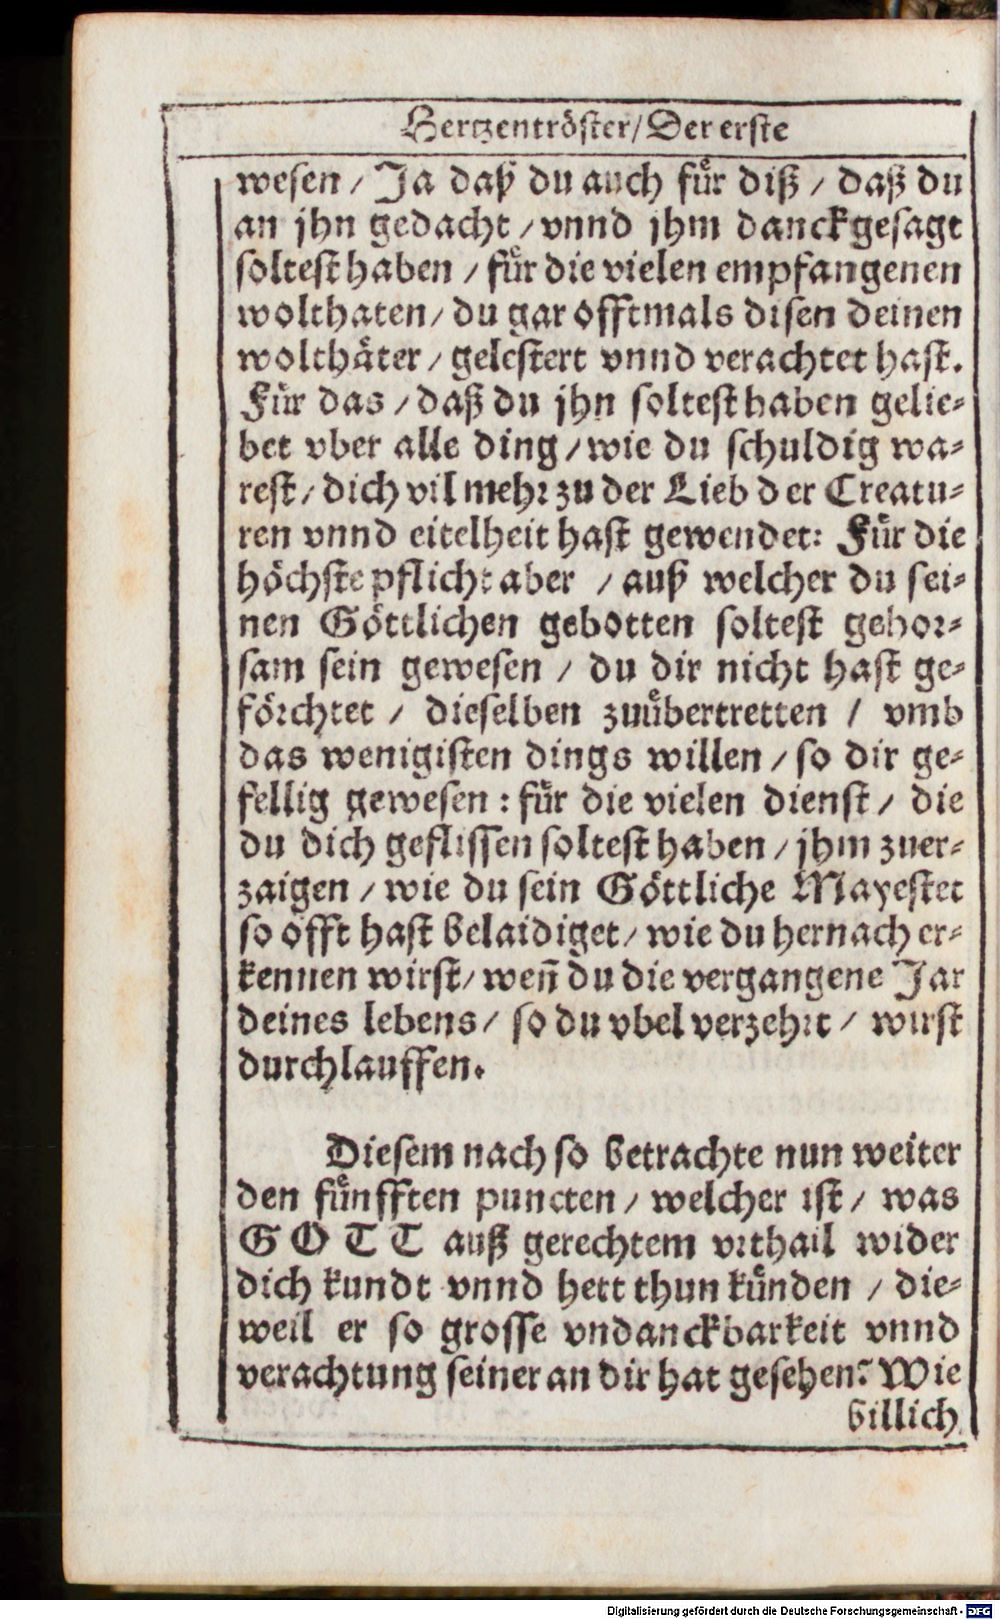 Hertzentröster/ Der erste
wesen / Ja daß du auch fuͤr diß / daß du
an jhn gedacht / vnnd jhm danck gesagt
soltest haben / fuͤr die vielen empfangenen
wolthaten / du gar offtmals disen deinen
wolthaͤter / gelestert vnnd verachtet hast.
Fuͤr das / daß du jhn soltest haben gelie-
bet vber alle ding / wie du schuldig wa-
rest / dich vil mehr zu der Lieb der Creatu-
ren vnnd eitelheit hast gewendet: Fuͤr die
hoͤchste pflicht aber / auß welcher du sei-
nen Goͤttlichen gebotten soltest gehor-
sam sein gewesen / du dir nicht hast ge-
foͤrchtet / dieselben zuuͤbertretten / vmb
das wenigisten dings willen / so dir ge-
fellig gewesen : fuͤr die vielen dienst / die
du dich geflissen soltest haben / jhm zuer-
zaigen / wie du sein Goͤttliche Mayestet
so offt hast belaidiget / wie du hernach er-
kennen wirst / weñ du die vergangene Jar
deines lebens / so du vbel verzehrt / wirst
durchlauffen.
Diesem nach so betrachte nun weiter
den fuͤnfften puncten / welcher ist / was
GOTT auß gerechtem vrthail wider
dich kundt vnnd hett thun kuͤnden / die-
weil er so grosse vndanckbarkeit vnnd
verachtung seiner an dir hat gesehen? Wie
billich
Digitalisierung gefördert durch die Deutsche Forschungsgemeinschaft - DFG